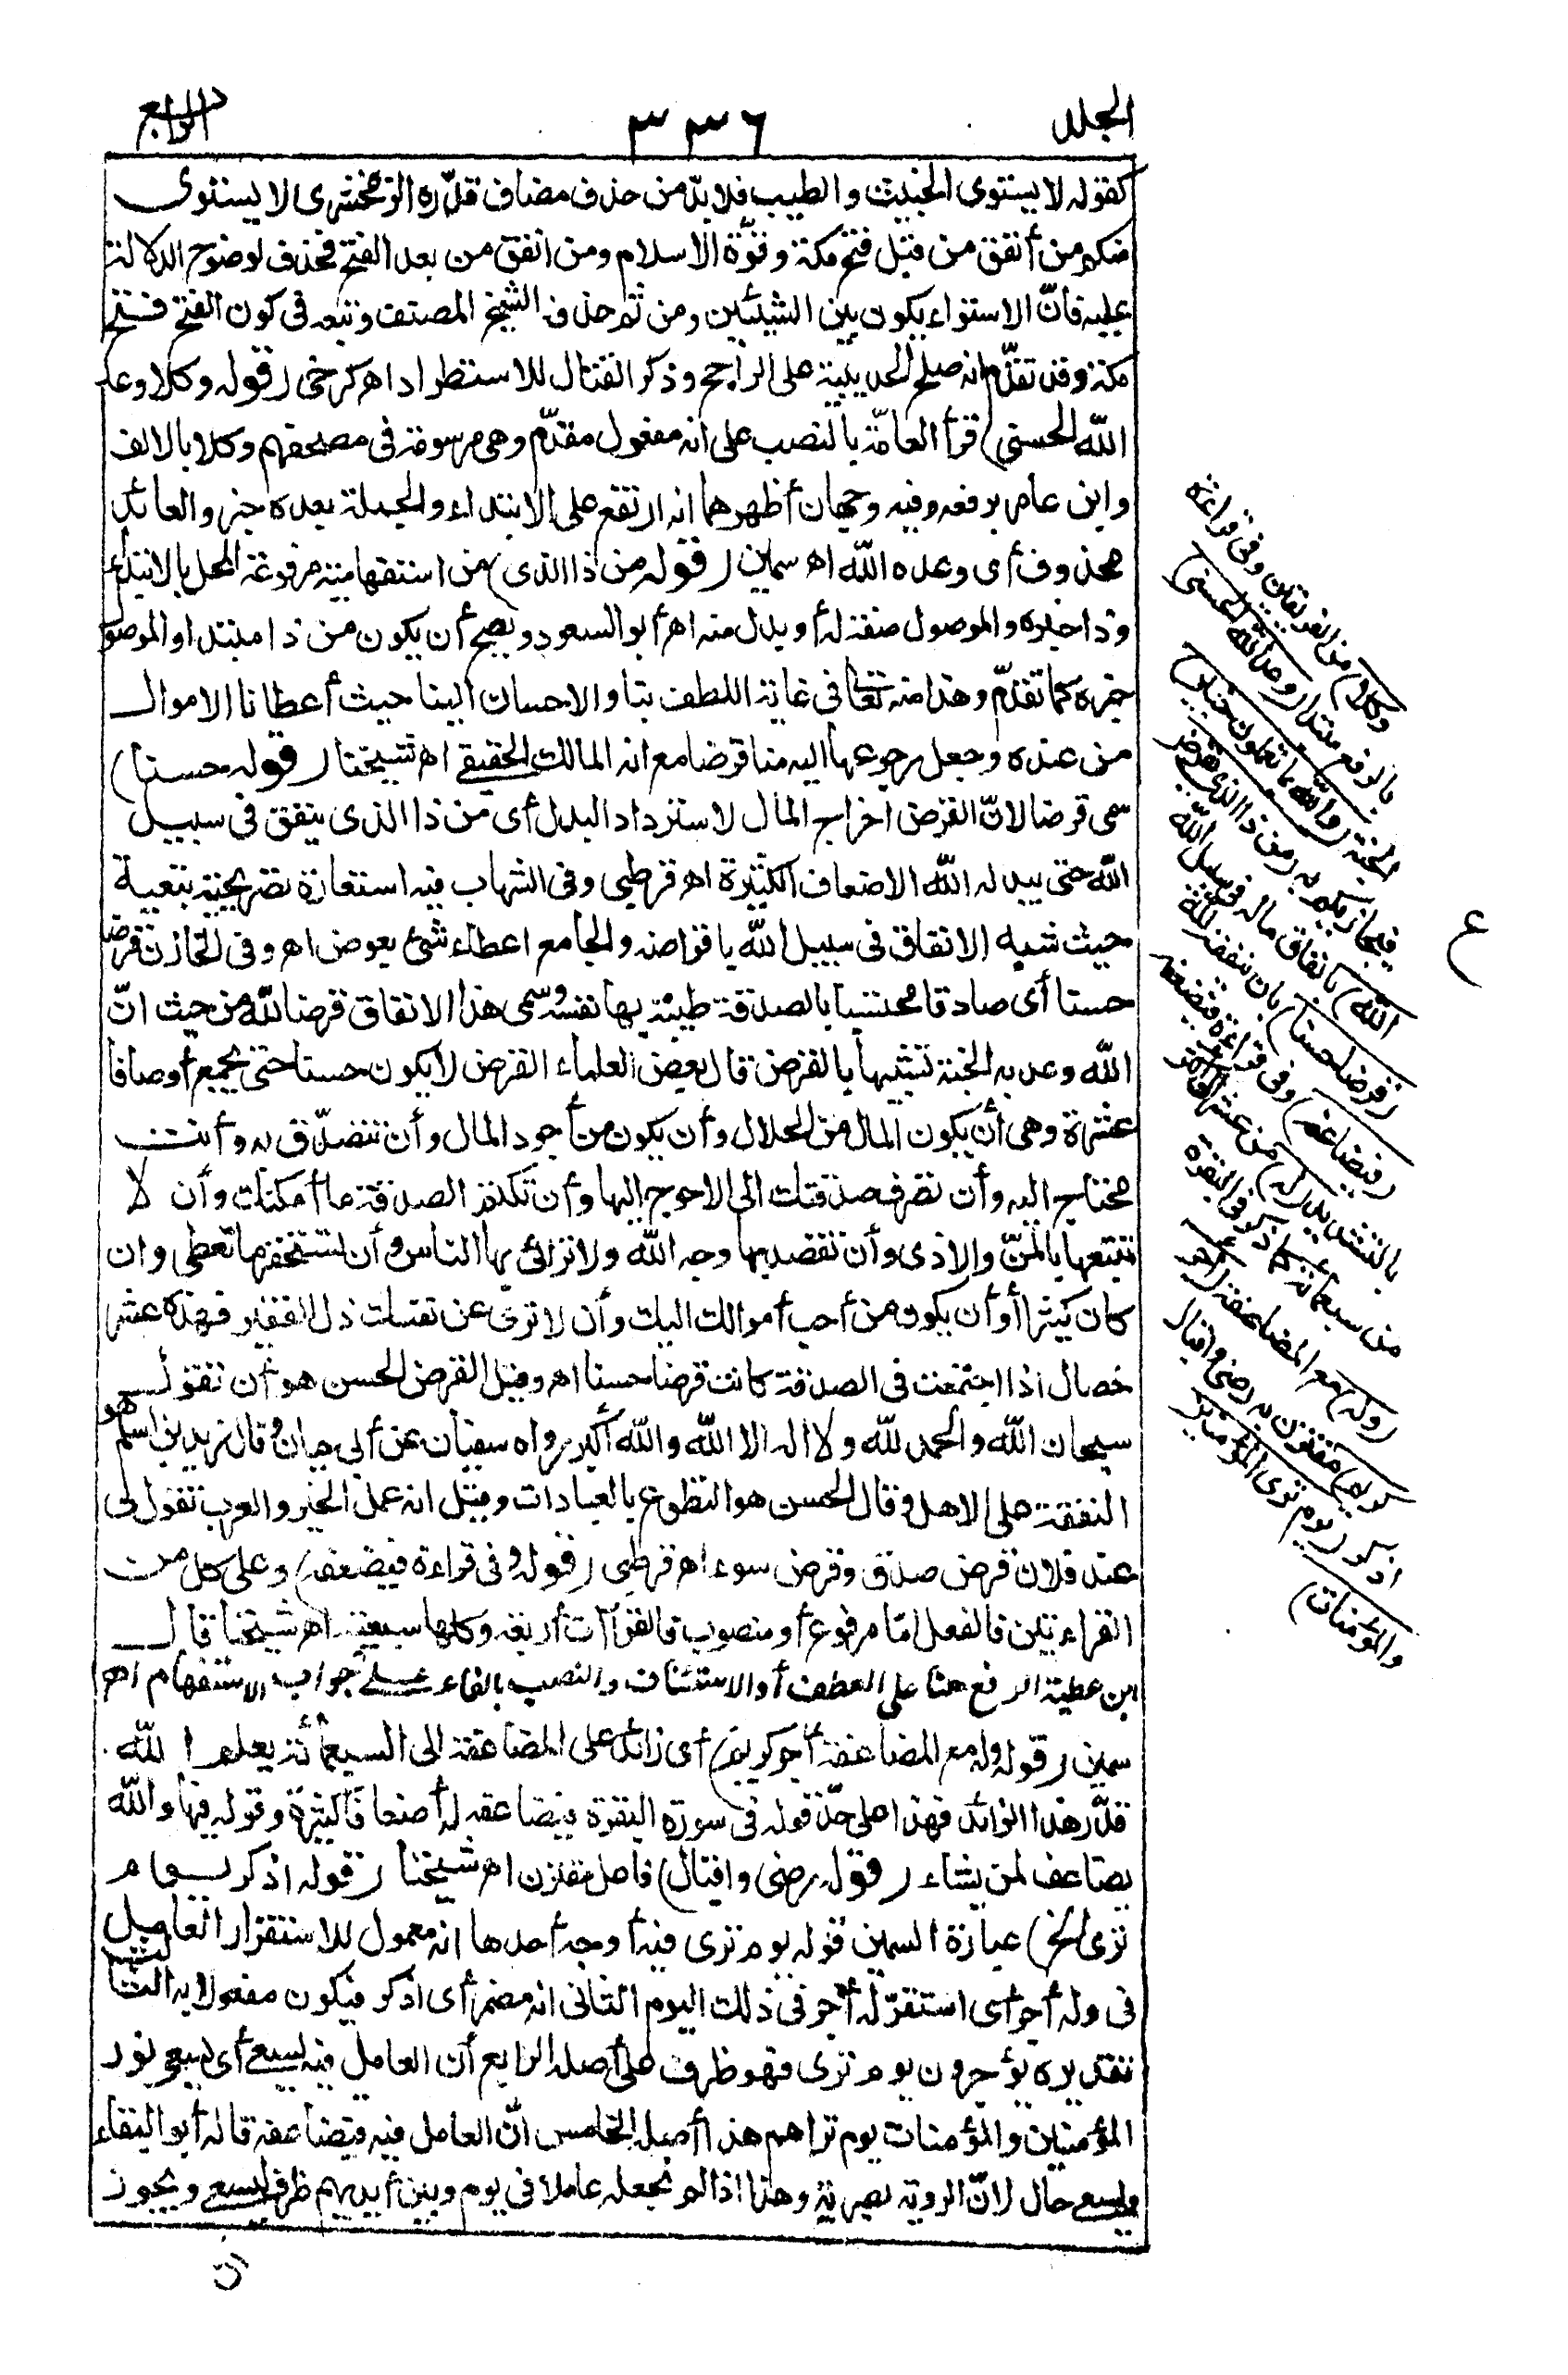 الجلد
٣٣٦
الرابع
كقوله لا يستوى الخبيث والطيب فلا بدّ من حذف مضاف قدّره الزمخشرى لا يستوى
منكم من أنفق من قبل فتح مكة وقوّة الاسلام ومن انفق من بعد الفتح فحذف لوضوح الدلالة
عليه فانّ الاستواء يكون بين الشيئين ومن ثم حذف الشيخ المصنف وتبعه فى كون الفتح فتح
مكة وقد تقدّم انه صلح الحديبية على الراجح وذكر القتال للاستطراد اهـ كرخى (قوله وكلا وعد
الله الحسنى) قرأ العامّة بالنصب على انه مفعول مقدّم وهى مرسومة فى مصحفهم وكلا بالالف
وابن عامر برفعه وفيه وجهان أظهرهما انه ارتفع على الابتداء والجملة بعده خبر والعائد
محذوف أى وعده الله اهـ سمين (قوله من ذا الذى) من استفهامية مرفوعة المحل بالابتداء
وذا خبره والموصول صفة له أو بدل منه اهـ أبو السعود ويصح أن يكون من ذا مبتدا والموصول
خبره كما تقدّم وهذا منه تعالى غاية اللطف بنا والاحسان الينا حيث أعطانا الاموال
من عنده وجعل رجوعها اليه منا قرضا مع انه المالك الحقيقى اهـ شيخنا (قوله حسنا)
سمى قرضا لانّ القرض اخراج المال لاسترداد البدل أى من ذا الذى ينفق فى سبيل
الله حتى يبدله الله الاضعاف الكثيرة اهـ قرطبى وفى الشهاب فيه استعارة تصريحية تبعية
حيث شبه الانفاق فى سبيل الله باقراضه والجامع اعطاء شئ بعوض اهـ وفى الخازن قرضا
حسنا أى صادقا محتسبا بالصدقة طيبة بها نفسه وسمى هذا الانفاق قرضا لله من حيث انّ
الله وعد به الجنة تشبيها بالقرض قال بعض العلماء القرض لا يكون حسنا حتى يجمع أوصافا
عشرة وهى أن يكون المال من الحلال وأن يكون من أجود المال وأن تتصدّق به وأنت
محتاج اليه وأن تصرف صدقتك الى الاحوج اليها وأن تكتم الصدقة ما أمكنك وأن لا
تتبعها بالمنّ والاذى وأن تقصد بها وجه الله ولا ترائى بها الناس وأن تستحقر ما تعطى وان
كان كثيرا وأن يكون من أحب أموالك اليك وأن لا ترى عز نفسك وذل الفقير فهذه عشر
خصال اذا اجتمعت فى الصدقة كانت قرضا حسنا اهـ وقيل القرض الحسن هو أن تقول
سبحان الله والحمد لله ولا اله الا الله والله أكبر رواه سفيان عن أبى حيان وقال زيد بن اسلم هو
النفقة على الاهل وقال الحسن هو التطوع بالعبادات وقيل انه عمل الخير والعرب تقول لى
عند فلان قرض صدق وقرض سوء اهـ قرطبى (قوله وفى قراءة فيضعفه) وعلى كل من
القراءتين فالفعل امّا مرفوع أو منصوب فالقراآت أربعة وكلها سبعية اهـ شيخنا قال
ابن عطية الرفع هنا على العطف أو الاستئناف والنصب بالفاء على جواب الاستفهام اهـ
سمين (قوله وله مع المضاعفة أجر كريم) أى زائد على المضاعفة الى السبعمائة يعلم الله
قدر هذا الزائد فهذا على حدّ قوله فى سورة البقرة فيضاعفه له أضعافا كثيرة وقوله فيها والله
يضاعف لمن يشاء (قوله رضى واقبال) فاعل مقترن اهـ شيخنا (قوله اذكر يوم
ترى الخ) عبارة السمين قوله يوم ترى فيه أوجه أحدها انه معمول للاستقرار العامل
فى وله أجر أى استقرّ له أجر فى ذلك اليوم الثانى انه مضمر أى اذكر فيكون مفعولا به الثالث
تقديره يؤجرون يوم ترى فهو ظرف على أصله الرابع أن العامل فيه يسعى أى يسعى نور
المؤمنين والمؤمنات يوم تراهم هذا أصله الخامس انّ العامل فيه فيضاعفه قاله أبو البقاء
ويسعى حال لانّ الرؤية بصرية وهذا اذا لم نجعله عاملا فى يوم وبين أيديهم ظرف ليسعى ويجوز
(وكلا) من الفريقين وفى قراءة
بالرفع مبتدا (وعد الله الحسنى)
الجنة (والله بما تعملون خبير)
فيجازيكم به (من ذا الذى يقرض
الله) بانفاق ماله فى سبيل الله
(قرضا حسنا) بان ينفقه لله
(فيضاعفه) وفى قراءة فيضعفه
بالتشديد (له) من عشر الى أكثر
من سبعمائة كما ذكر فى البقرة
(وله) مع المضاعفة (أجر
كريم) مقترن به رضى واقبال
اذكر (يوم ترى المؤمنين
والمؤمنات)
ع